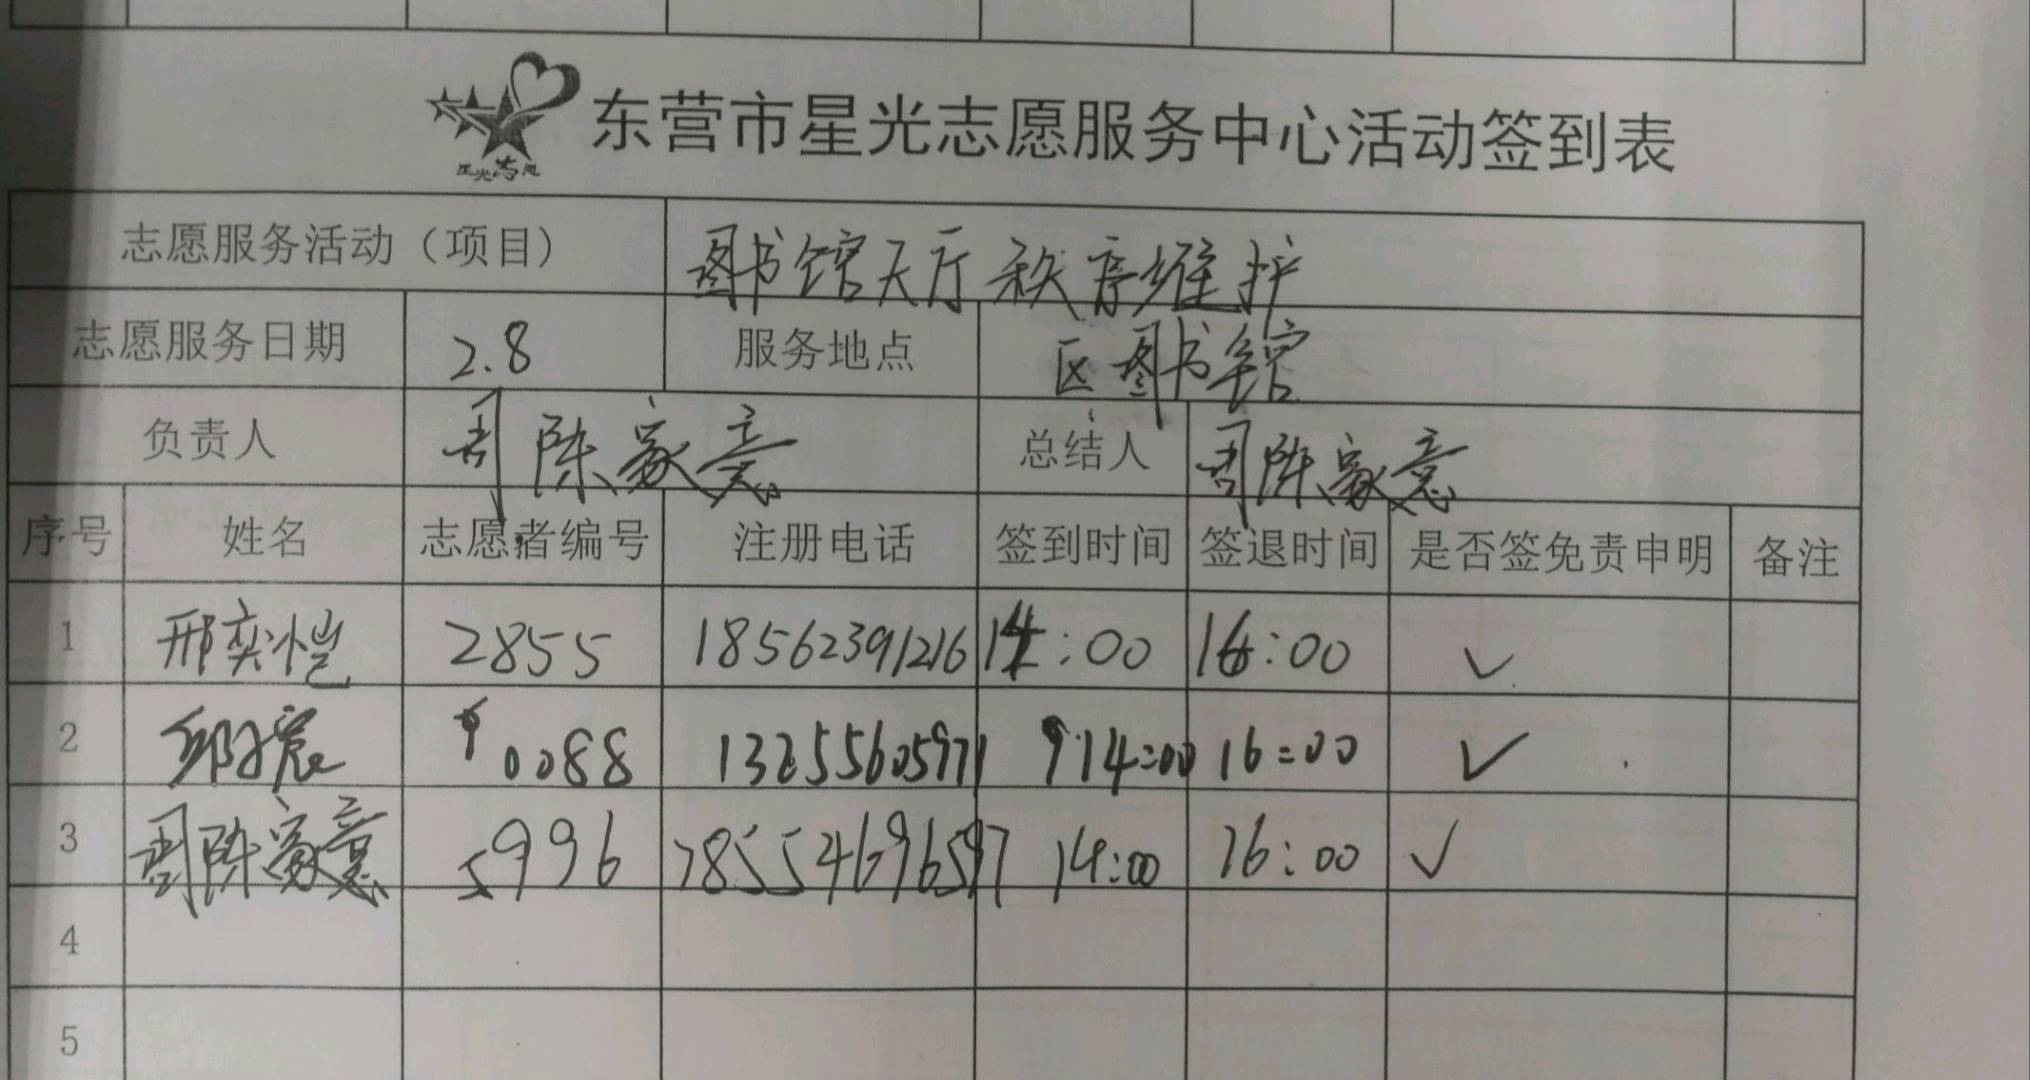 星光志愿
东营市星光志愿服务中心活动签到表
志愿服务活动（项目） 图书馆天厅秩序维护
志愿服务日期 2.8 服务地点 区图书馆
负责人 周陈家意 总结人 周陈家意
序号 姓名 志愿者编号 注册电话 签到时间 签退时间 是否签免责申明 备注
1 邢奕恺 2855 18562391216 14:00 16:00 ✓
2 0088 14:00 16:00 ✓
3 周陈家意 5996 18554696597 14:00 16:00 ✓
4
5